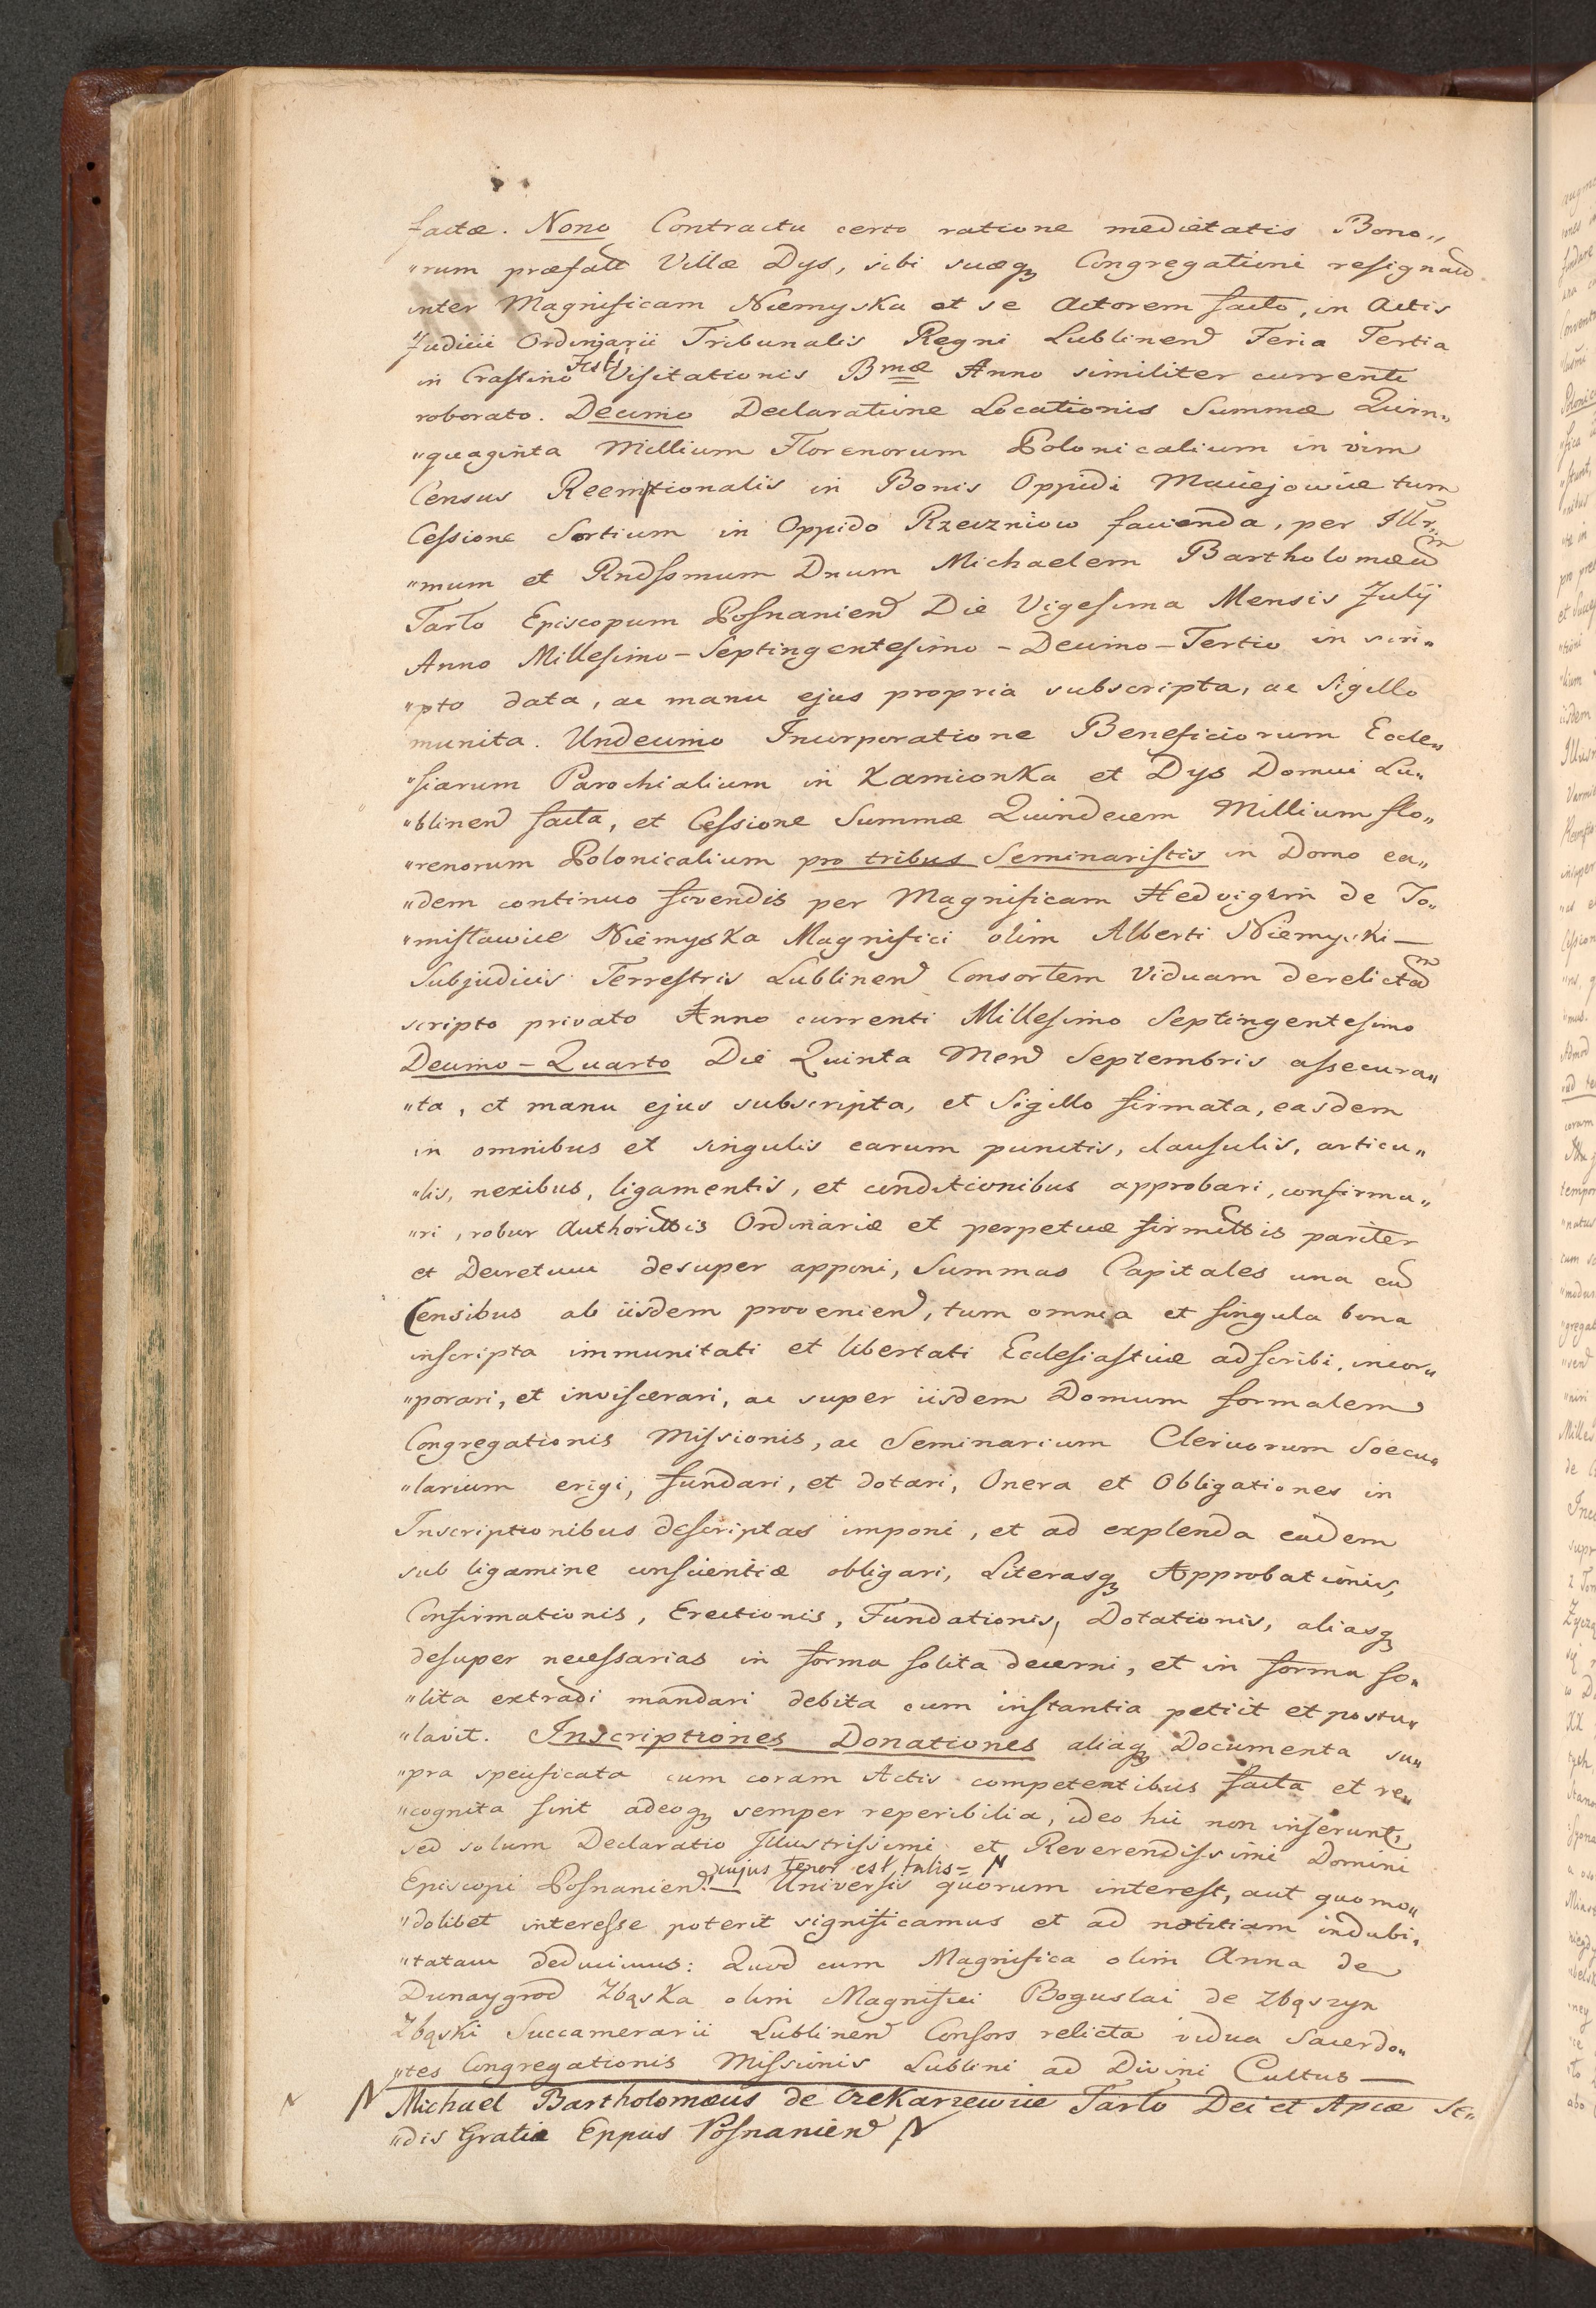 factæ. Nono Contractu certo ratione medietatis Bono„
„rum præfatt Villæ Dys, sibi suæq₃ Congregationi resignand
inter Magnificam Niemyska et se Actorem facto, in Actis
Judicii Ordinjarii Tribunalis Regni Lublinen Feria Tertia
in Crastino Festi Visitationis Bmæ Anno similiter currenti
roborato. Decimo Declaratione Locationis Summæ Quin„
„quaginta Millium Florenorum Polonicalium in vim
Census Reemptionalis in Bonis Oppidi Maciejowice tum
Cessione Sortium in Oppido Rzeczniow facienda, per Illr„
„mum et Rndssmum Dnum Michaelem Bartholomæum
Tarlo Episcopum Posnanien Die Vigesima Mensis Julij
Anno Millesimo-Septingentesimo-Decimo-Tertio in scri„
„pto data, ac manu ejus propria subscripta, ac Sigillo
munita. Undecimo Incorporatione Beneficiorum Eccle„
„siarum Parochialium in Kamionka et Dys Domui Lu„
„blinen facta, et Cessione Summæ Quindecem Millium flo„
„renorum Polonicalium pro tribus Seminaristis in Domo ea„
„dem continuo fovendis per Magnificam Hedvigem de To„
„misławice Niemyska Magnifici olim Alberti Niemyski —
Subjudicis Terrestris Lublinen Consortem Viduam derelictam
scripto privato Anno currenti Millesimo Septingentesimo
Decimo-Quarto Die Quinta Men Septembris assecura„
„ta, et manu ejus subscripta, et Sigillo firmata, easdem
in omnibus et singulis earum punctis, clausulis, articu„
„lis, nexibus, ligamentis, et conditionibus approbari, confirma„
„ri, robur Authorittis Ordinariæ et perpetuæ firmittis pariter
et Decretum desuper apponi, Summas Capitales una cum
Censibus ab iisdem provenien, tum omnia et singula bona
inscripta immunitati et libertati Ecclesiasticæ adscribi, incor„
„porari, et inviscerari, ac super iisdem Domum formalem
Congregationis Missionis, ac Seminarium Clericorum Sæcu„
„larium erigi, fundari, et dotari, Onera et Obligationes in
Inscriptionibus descriptas imponi, et ad explenda eadem
sub ligamine conscientiæ obligari, Literasq₃ Approbationis,
Confirmationis, Erectionis, Fundationis, Dotationis, aliasq₃
desuper necessarias in forma solita decerni, et in forma so„
„lita extradi mandari debita cum instantia petiit et postu„
„lavit. Inscriptiones Donationes aliaq₃ Documenta su„
„pra specificata cum coram Actis competentibus facta et re„
„cognita sint adeoq₃ semper reperibilia, ideo hic non inserunt,
sed solum Declaratio Illustrissimi et Reverendissimi Domini
Episcopi Posnanien. cujus tenor est talis = N Universis quorum interest, aut quomo„
„dolibet interesse poterit significamus et ad notitiam indubi„
„tatam deducimus: Quod cum Magnifica olim Anna de
Dunaygrod Zbąska olim Magnifici Boguslai de Zbąszyn
Zbąski Succamerarii Lublinen Consors relicta vidua Sacerdo„
„tes Congregationis Missionis Lublini ad Divini Cultus —
N Michael Bartholomæus de Czekarzewice Tarlo Dei et Apcæ Se„
„dis Gratia Eppus Posnanien N